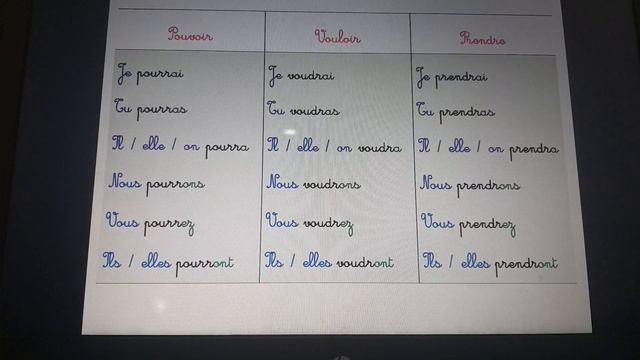 Pouvoir Vouloir Prendre
Je pourrai Je voudrai Je prendrai
Tu pourras Tu voudras Tu prendras
Il / elle / on pourra Il / elle / on voudra Il / elle / on prendra
Nous pourrons Nous voudrons Nous prendrons
Vous pourrez Vous voudrez Vous prendrez
Ils / elles pourront Ils / elles voudront Ils / elles prendront